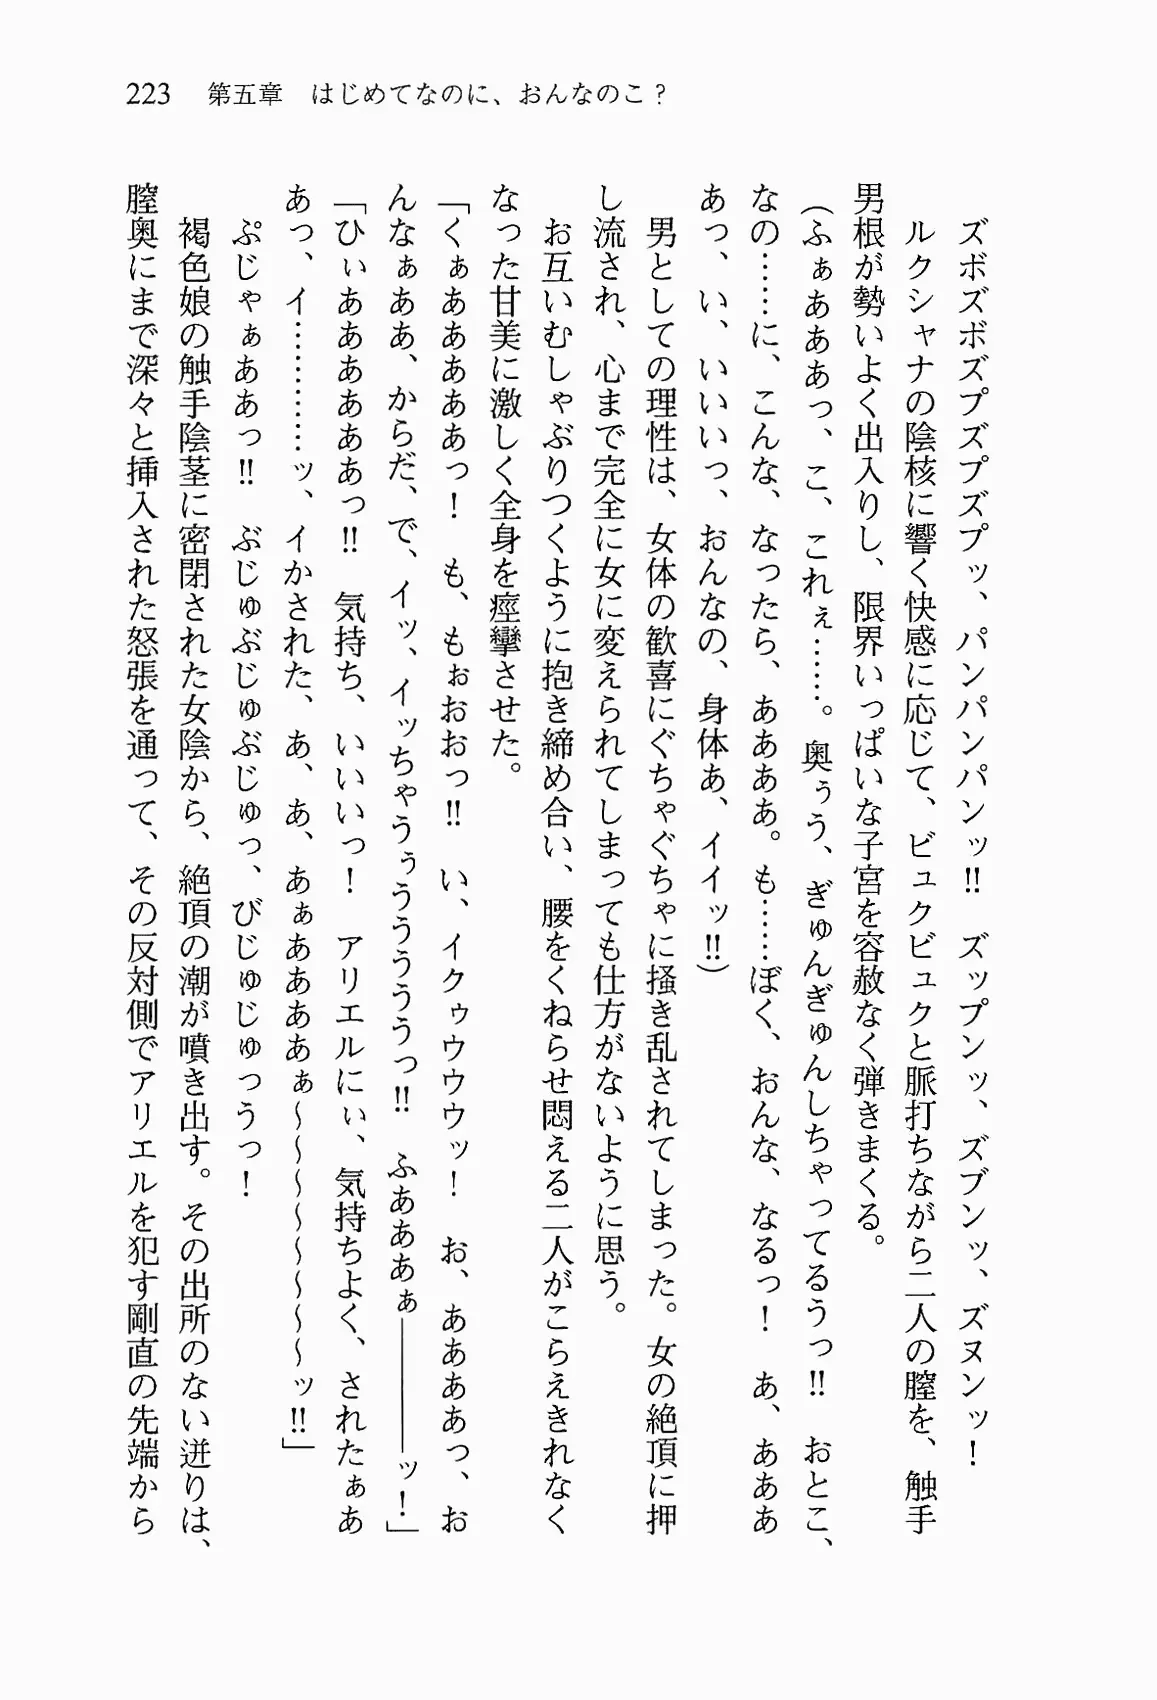 223　第五章　はじめてなのに、おんなのこ？
ズボズボズプズプズプッ、パンパンパンッ!!　ズップンッ、ズブンッ、ズヌンッ！
ルクシャナの陰核に響く快感に応じて、ビュクビュクと脈打ちながら二人の膣を、触手
男根が勢いよく出入りし、限界いっぱいな子宮を容赦なく弾きまくる。
（ふぁあああっ、こ、これぇ……。奥ぅう、ぎゅんぎゅんしちゃってるうっ!!　おとこ、
なの……に、こんな、なったら、ああああ。も……ぼく、おんな、なるっ！　あ、あああ
あっ、い、いいいっ、おんなの、身体あ、イイッ!!）
男としての理性は、女体の歓喜にぐちゃぐちゃに掻き乱されてしまった。女の絶頂に押
し流され、心まで完全に女に変えられてしまっても仕方がないように思う。
お互いむしゃぶりつくように抱き締め合い、腰をくねらせ悶える二人がこらえきれなく
なった甘美に激しく全身を痙攣させた。
「くぁああああああっ！　も、もぉおおっ!!　い、イクゥウウウッ！　お、ああああっ、お
んなぁああ、からだ、で、イッ、イッちゃうぅうううううっ!!　ふあああぁ――――ッ！」
「ひぃああああああああっ!!　気持ち、いいいっ！　アリエルにぃ、気持ちよく、されたぁあ
あっ、イ…………ッ、イかされた、あ、あ、あぁああああぁ～～～～～～～～ッ!!」
ぷじゃぁああっ!!　ぶじゅぶじゅぶじゅっ、びじゅじゅっうっ！
褐色娘の触手陰茎に密閉された女陰から、絶頂の潮が噴き出す。その出所のない迸りは、
膣奥にまで深々と挿入された怒張を通って、その反対側でアリエルを犯す剛直の先端から